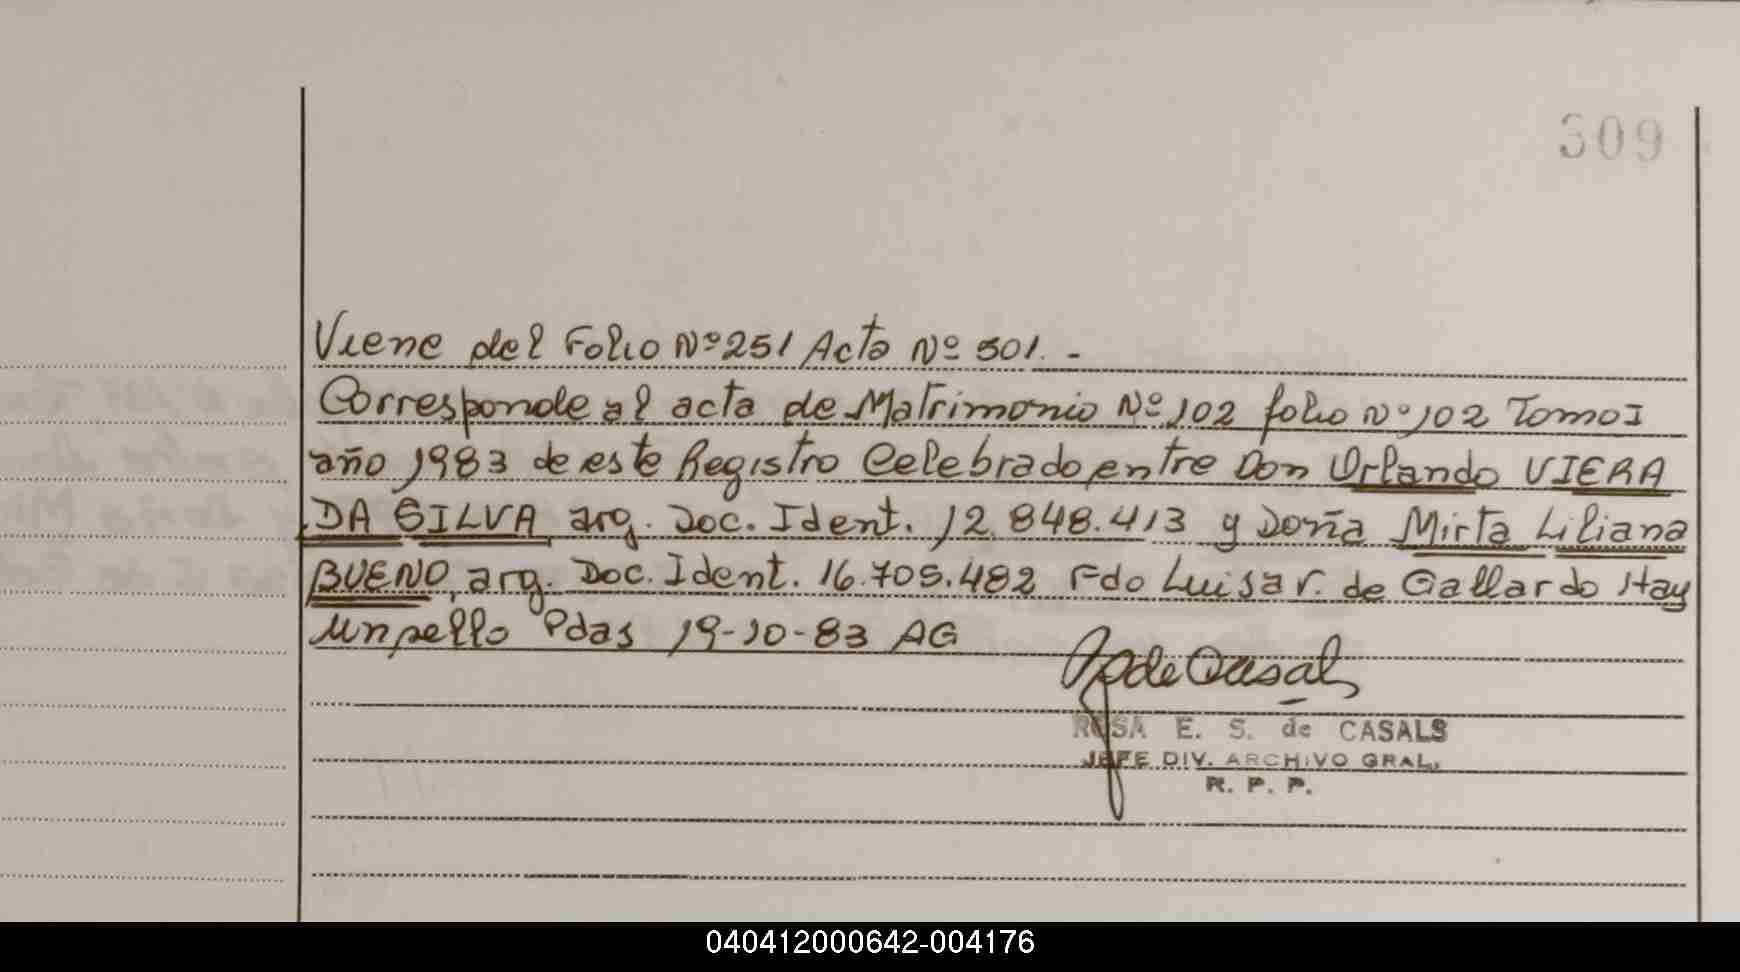 309
Viene del Folio Nº 251 Acta Nº 501. -
Corresponde al acta de Matrimonio Nº 102 folio Nº 102 Tomo I
año 1983 de este Registro Celebrado entre Don Orlando VIERA
DA SILVA arg. Doc. Ident. 12.848.413 y Doña Mirta Liliana
BUENO, arg. Doc. Ident. 16.705.482 Fdo Luisa r. de Gallardo Hay
un sello Pdas 19-10-83 AG
de Casals
ROSA E. S. de CASALS
JEFE DIV. ARCHIVO GRAL.
R. P. P.
040412000642-004176